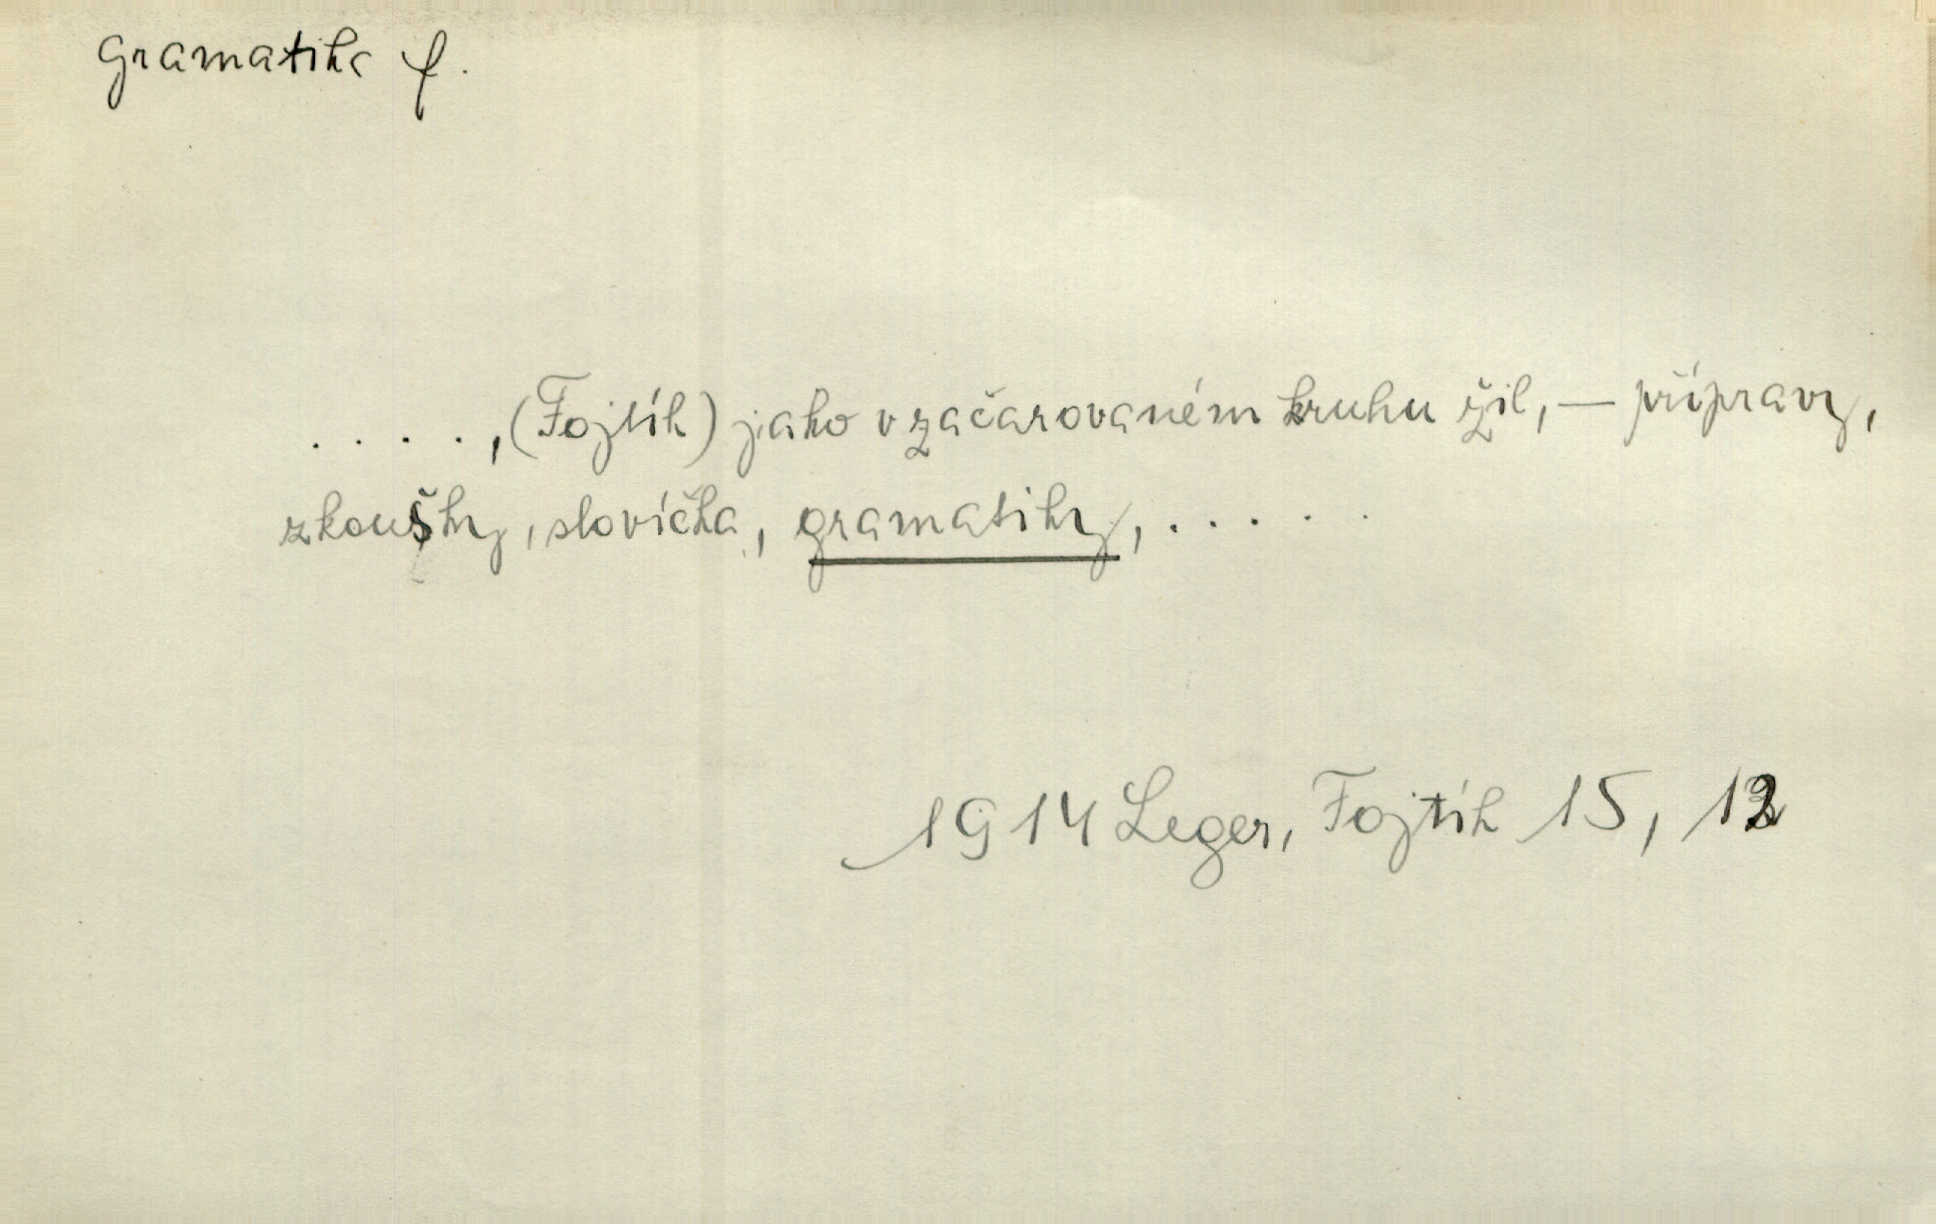 gramatika f.
. . . . . , (Fojtík) jako v začarovaném kruhu žil, — přípravy,
zkoušky, slovíčka, gramatiky, . . . . .
1914 Leger, Fojtík 15, 12